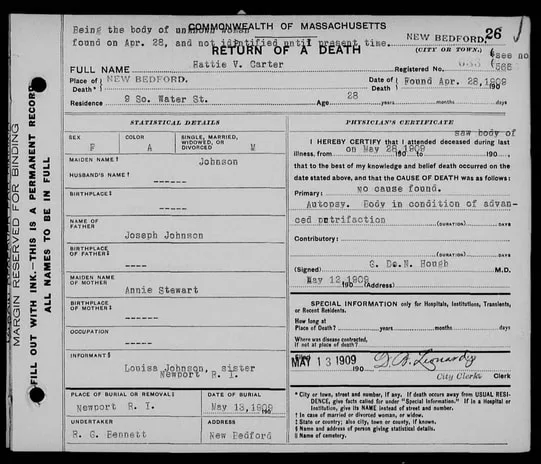 COMMONWEALTH OF MASSACHUSETTS
Being the body of unknown woman
found on Apr. 28, and not identified until present time.
RETURN OF A DEATH
NEW BEDFORD, 26
(CITY OR TOWN.)
FULL NAME Hattie V. Carter
Registered No. (see no 588
Place of Death* NEW BEDFORD.
Date of Death Found Apr. 28, 1909
Residence 9 So. Water St. Age 28 years months days
MARGIN RESERVED FOR BINDING
FILL OUT WITH INK.—THIS IS A PERMANENT RECORD
ALL NAMES TO BE IN FULL
STATISTICAL DETAILS
SEX
F
COLOR
A
SINGLE, MARRIED, WIDOWED, OR DIVORCED
M
MAIDEN NAME†
Johnson
HUSBAND'S NAME†
------
BIRTHPLACE‡
------
NAME OF FATHER
Joseph Johnson
BIRTHPLACE OF FATHER‡
----
MAIDEN NAME OF MOTHER
Annie Stewart
BIRTHPLACE OF MOTHER‡
------
OCCUPATION
-----
INFORMANT§
Louisa Johnson, sister
Newport R. I.
PLACE OF BURIAL OR REMOVAL‖
Newport R. I.
DATE OF BURIAL
May 13, 1909 190
UNDERTAKER
R. G. Bennett
ADDRESS
New Bedford
PHYSICIAN'S CERTIFICATE
saw body of
I HEREBY CERTIFY that I attended deceased during last
illness, from on May 28, 1909 190 to 190 ,
that to the best of my knowledge and belief death occurred on the
date stated above, and that the CAUSE OF DEATH was as follows:
Primary: No cause found.
Autopsy. Body in condition of advan-
ced putrifaction (DURATION) DAYS
Contributory:
(DURATION) DAYS
(Signed) S. De.N. Hough M.D.
May 12, 1909 190 (Address)
SPECIAL INFORMATION only for Hospitals, Institutions, Transients,
or Recent Residents.
How long at
Place of Death? years months days
Where was disease contracted,
if not at place of death?
MAY 13 1909
190
City Clerk Clerk
* City or town, street and number, if any. If death occurs away from USUAL RESI-
DENCE, give facts called for under "Special Information." If in a Hospital or
Institution, give its NAME instead of street and number.
† In case of married or divorced woman, or widow.
‡ State or country; also city, town or county, if known.
§ Name and address of person giving statistical details.
‖ Name of cemetery.